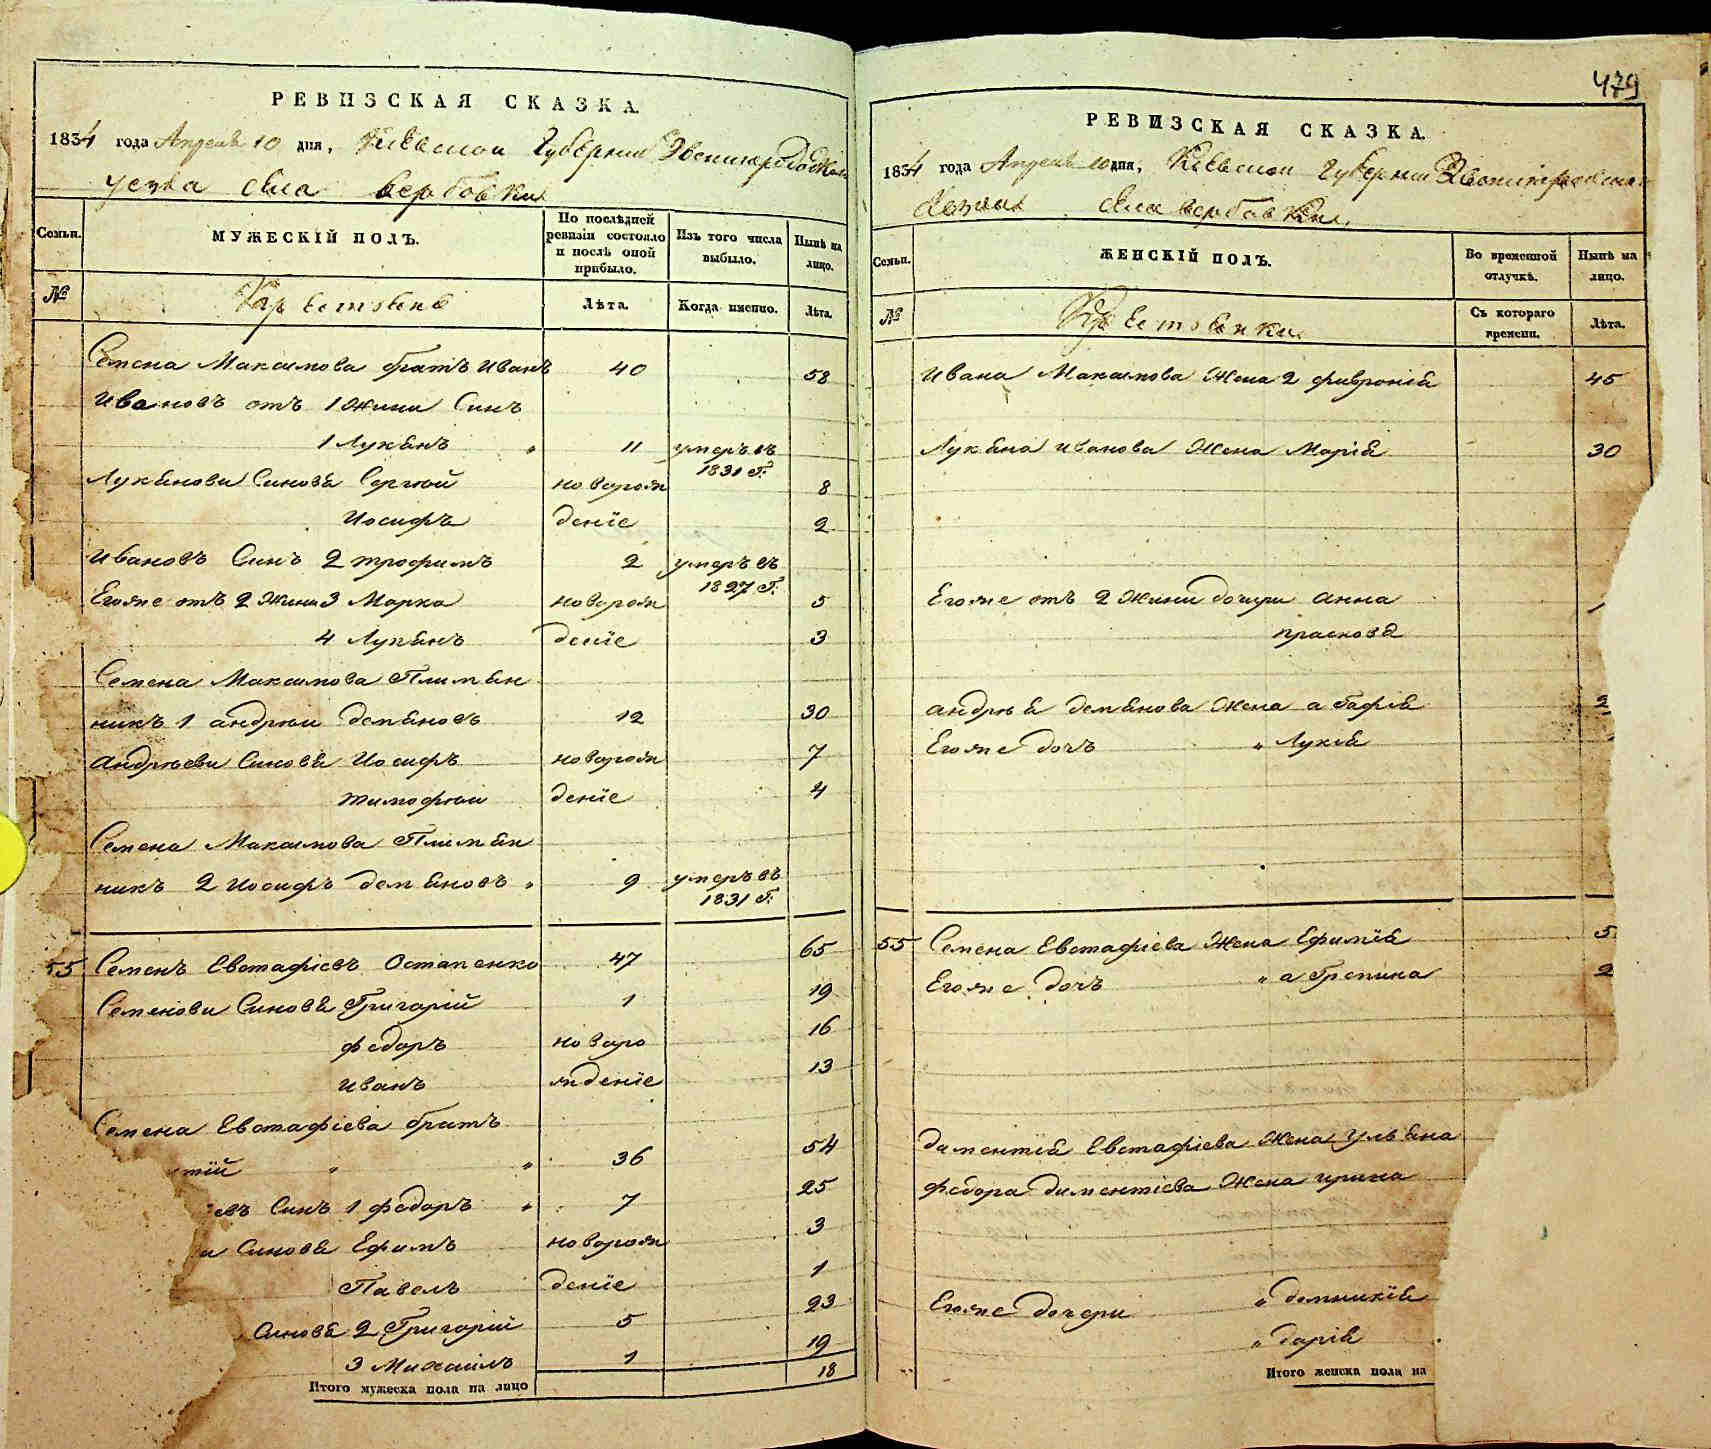 479
РЕВИЗСКАЯ СКАЗКА.
1834 года Апреля 10 дня, Киевской Губернии Звенигородскаго
уезда села Вербовки
Семьи.
МУЖЕСКІЙ ПОЛЪ.
По послѣдней ревизіи состояло и послѣ оной прибыло.
Изъ того числа выбыло.
Нынѣ на лицо.
№
Лѣта.
Когда именно.
Лѣта.
Семена Максимова братъ Иванъ 40 58
Ивановъ отъ 1 жини Синъ
1 Лукянъ " 11 умеръ въ 1831 г.
Лукянови Синовя Сергий новорож 8
Иосифъ дение 2
Ивановъ Синъ 2 трофимъ 2 умеръ въ 1827 г.
Егоже отъ 2 жини 3 Марко новорож 5
4 Лукянъ дение 3
Семена Максимова Племян
никъ 1 андрѣи демяновъ 12 30
Андрѣеви Синовя Иосифъ новорож 7
тимофѣи дение 4
Семена Максимова Племян
никъ 2 Иосифъ демяновъ " 9 умеръ въ 1831 г.
55 Семенъ Евстафіевъ Остапенко 47 65
Семенови Синовя Григорій 1 19
федоръ новоро 16
иванъ ждение 13
Семена Евстафіева братъ
тій " " 36 54
евъ Синъ 1 федоръ " 7 25
и Синовя Ефимъ новорож 3
Павелъ дение 1
Синовя 2 Григорій 5 23
3 Михаилъ 1 19
Итого мужеска пола на лицо 18
РЕВИЗСКАЯ СКАЗКА.
1834 года Апреля 10 дня, Киевской Губернии Звенигородскаго
уезда села Вербовки.
Семьи.
ЖЕНСКІЙ ПОЛЪ.
Во временной отлучкѣ.
Нынѣ на лицо.
№
Съ котораго времени.
Лѣта.
Ивана Максимова жена 2 февронія 45
Лукяна иванова жена Марія 30
Егоже отъ 2 жини дочери анна
прасковя
андрѣя демянова жена агафія 2
Егоже дочъ " Лукія
55 Семена Евстафіева жена Ефимія 5
Егоже дочъ " агрепина 2
дементія Евстафіева жена ульяна
федора дементіева жена ирина
Егоже дочери " домникія
" дарія
Итого женска пола на